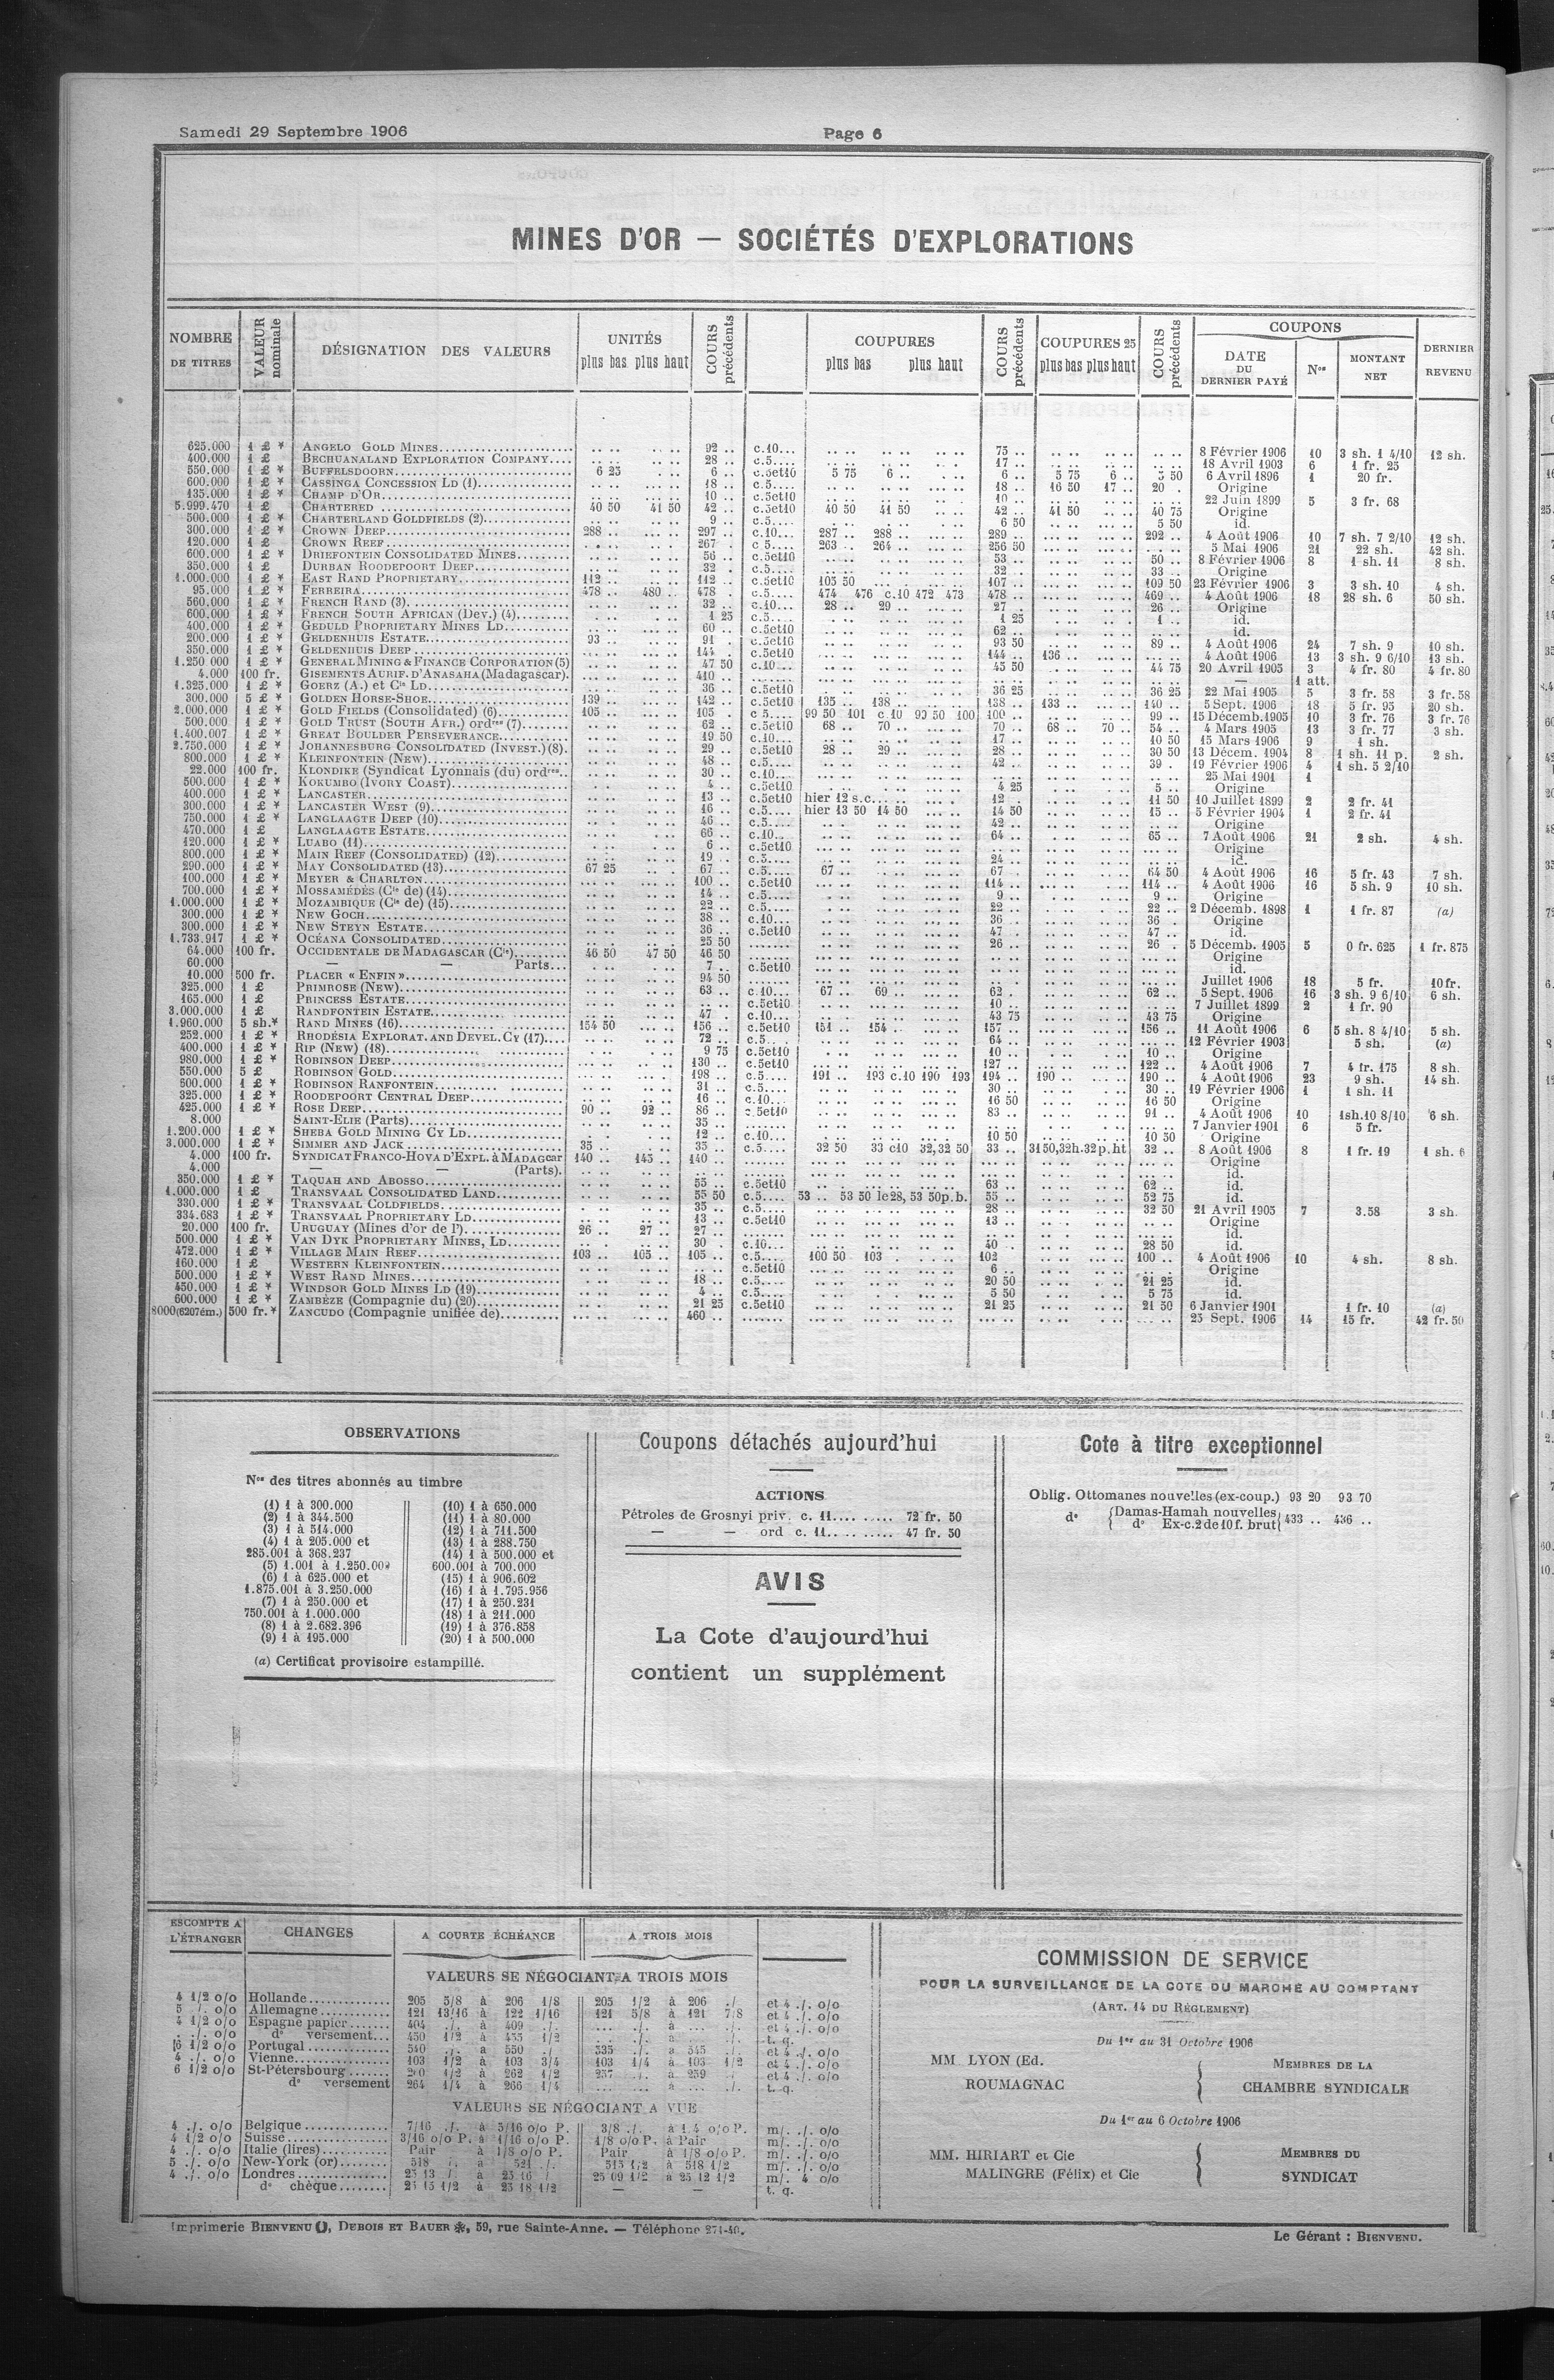 Samedi 29 Septembre 1906
Page 6
MINES D'OR — SOCIÉTÉS D'EXPLORATIONS
NOMBRE DE TITRES
VALEUR nominale
DÉSIGNATION DES VALEURS
UNITÉS
plus bas plus haut
COURS précédents
COUPURES
plus bas plus haut
COURS précédents
COUPURES 25
plus bas plus haut
COURS précédents
COUPONS
DATE DU DERNIER PAYÉ
Nos
MONTANT NET
DERNIER REVENU
625.000 1 £ * ANGELO GOLD MINES 92 .. c.10... 75 .. 8 Février 1906 10 3 sh. 1 4/10 12 sh.
400.000 1 £ BECHUANALAND EXPLORATION COMPANY 28 .. c.5.... 17 .. 18 Avril 1903 6 1 fr. 25
550.000 1 £ * BUFFELSDOORN 6 25 6 .. c.5et10 5 75 6 .. 6 .. 5 75 6 .. 5 50 6 Avril 1896 1 20 fr.
600.000 1 £ * CASSINGA CONCESSION LD (1) 18 .. c.5.... 18 .. 16 50 17 .. 20 . Origine
135.000 1 £ * CHAMP D'OR 10 .. c.5et10 10 .. 22 Juin 1899 5 3 fr. 68
5.999.470 1 £ CHARTERED 40 50 41 50 42 .. c.5et10 40 50 41 50 42 .. 41 50 40 75 Origine
500.000 1 £ * CHARTERLAND GOLDFIELDS (2) 9 .. c.5.... 6 50 5 50 id.
300.000 1 £ * CROWN DEEP 288 .. 297 .. c.10... 287 .. 288 .. 289 .. 292 .. 4 Août 1906 10 7 sh. 7 2/10 12 sh.
120.000 1 £ CROWN REEF 267 . c 5.... 263 . 264 .. 256 50 5 Mai 1906 21 22 sh. 42 sh.
600.000 1 £ * DRIEFONTEIN CONSOLIDATED MINES 56 .. c.5et10 53 .. 50 .. 8 Février 1906 8 1 sh. 11 8 sh.
350.000 1 £ DURBAN ROODEPOORT DEEP 32 . c.5.... 32 .. 33 .. Origine
1.000.000 1 £ * EAST RAND PROPRIETARY 112 .. 112 .. c.5et10 105 50 107 .. 109 50 23 Février 1906 3 3 sh. 10 4 sh.
95.000 1 £ * FERREIRA 478 .. 480 .. 478 . c.5.... 474 476 c.10 472 473 478 .. 469 .. 4 Août 1906 18 28 sh. 6 50 sh.
560.000 1 £ * FRENCH RAND (3) 32 .. c.10... 28 .. 29 .. 27 . 26 .. Origine
600.000 1 £ * FRENCH SOUTH AFRICAN (Dev.) (4) 1 25 c.5.... 1 25 1 .. id.
400.000 1 £ * GEDULD PROPRIETARY MINES LD 60 .. c.5et10 62 .. id.
200.000 1 £ * GELDENHUIS ESTATE 93 .. 91 . c.5et10 93 50 89 .. 4 Août 1906 24 7 sh. 9 10 sh.
350.000 1 £ * GELDENHUIS DEEP 144 . c.5et10 144 .. 136 .. 4 Août 1906 13 3 sh. 9 6/10 13 sh.
1.250 000 1 £ * GENERAL MINING & FINANCE CORPORATION (5) 47 50 c.10... 45 50 44 75 20 Avril 1905 3 4 fr. 80 4 fr. 80
4.000 100 fr. GISEMENTS AURIF. D'ANASAHA (Madagascar). 410 .. — 1 att.
1.325.000 1 £ * GOERZ (A.) et Cie LD 36 .. c.5et10 36 25 36 25 22 Mai 1905 5 3 fr. 58 3 fr. 58
300.000 5 £ * GOLDEN HORSE-SHOE 139 .. 142 .. c.5et10 135 .. 138 .. 138 .. 133 .. 140 .. 5 Sept. 1906 18 5 fr. 95 20 sh.
2.000.000 1 £ * GOLD FIELDS (Consolidated) (6) 105 .. 105 c 5.... 99 50 101 c.10 99 50 100 100 .. 99 .. 15 Décemb. 1905 10 3 fr. 76 3 fr. 76
500.000 1 £ * GOLD TRUST (SOUTH AFR.) ordres (7) 62 .. c.5et10 68 .. 70 .. 70 .. 68 .. 70 .. 54 .. 4 Mars 1905 13 3 fr. 77 3 sh.
1.400.007 1 £ * GREAT BOULDER PERSEVERANCE 19 50 c.10... 17 .. 10 50 15 Mars 1906 9 1 sh.
2.750.000 1 £ * JOHANNESBURG CONSOLIDATED (INVEST.) (8). 29 .. c.5et10 28 .. 29 .. 28 .. 30 50 13 Décem. 1904 8 1 sh. 11 p. 2 sh.
800.000 1 £ * KLEINFONTEIN (New) 48 .. c.5.... 42 .. 39 . 19 Février 1906 4 1 sh. 5 2/10
22.000 100 fr. KLONDIKE (Syndicat Lyonnais (du) ordres.. 30 .. c.10... 25 Mai 1901 1
500.000 1 £ * KOKUMBO (IVORY COAST) 4 .. c.5et10 4 25 5 .. Origine
400.000 1 £ * LANCASTER 13 .. c.5et10 hier 12 s.c... 12 . 11 50 10 Juillet 1899 2 2 fr. 41
300.000 1 £ * LANCASTER WEST (9) 16 .. c.5.... hier 13 50 14 50 14 50 15 .. 5 Février 1904 1 2 fr. 41
750.000 1 £ * LANGLAAGTE DEEP (10) 46 .. c.5.... 42 .. Origine
470.000 1 £ LANGLAAGTE ESTATE 66 .. c.10.. 64 .. 65 .. 7 Août 1906 21 2 sh. 4 sh.
120.000 1 £ * LUABO (11) 6 .. c.5et10 Origine
800.000 1 £ * MAIN REEF (CONSOLIDATED) (12) 19 .. c.5.... 24 .. id.
290.000 1 £ * MAY CONSOLIDATED (13) 67 25 67 .. c.5.... 67 .. 67 . 64 50 4 Août 1906 16 5 fr. 43 7 sh.
100.000 1 £ * MEYER & CHARLTON 100 .. c.5et10 114 .. 114 .. 4 Août 1906 16 5 sh. 9 10 sh.
700.000 1 £ * MOSSAMÉDÈS (Cie de) (14) 14 .. c.5.... 9 .. 9 .. Origine
1.000.000 1 £ * MOZAMBIQUE (Cie de) (15) 22 .. c.5.... 22 .. 22 .. 2 Décemb. 1898 1 1 fr. 87 (a)
300.000 1 £ * NEW GOCH 38 .. c.10... 36 .. 36 .. Origine
300.000 1 £ * NEW STEYN ESTATE 36 .. c.5et10 47 .. 47 .. id.
1.733.917 1 £ * OCÉANA CONSOLIDATED 25 50 26 .. 26 . 5 Décemb. 1905 5 0 fr. 625 1 fr. 875
64.000 100 fr. OCCIDENTALE DE MADAGASCAR (Cie) 46 50 47 50 46 50 Origine
60.000 — — Parts... 7 .. c.5et10 id.
10.000 500 fr. PLACER « ENFIN » 94 50 Juillet 1906 18 5 fr. 10 fr.
325.000 1 £ PRIMROSE (NEW) 63 .. c.10... 67 .. 69 .. 62 . 62 .. 5 Sept. 1906 16 3 sh. 9 6/10 6 sh.
165.000 1 £ PRINCESS ESTATE c.5et10 10 .. 7 Juillet 1899 2 1 fr. 90
3.000.000 1 £ RANDFONTEIN ESTATE 47 . c.10... 43 75 43 75 Origine
1.960.000 5 sh.* RAND MINES (16) 154 50 156 .. c.5et10 151 .. 154 .. 157 .. 156 .. 11 Août 1906 6 5 sh. 8 4/10 5 sh.
252.000 1 £ * RHODÉSIA EXPLORAT. AND DEVEL. CY (17) 72 .. c.5... 64 .. 12 Février 1903 5 sh. (a)
400.000 1 £ * RIP (New) (18) 9 75 c.5et10 10 .. 10 .. Origine
980.000 1 £ * ROBINSON DEEP 130 .. c.5et10 127 .. 122 .. 4 Août 1906 7 4 fr. 175 8 sh.
550.000 5 £ ROBINSON GOLD 198 .. c.5.... 191 .. 193 c.10 190 193 194 .. 190 .. 190 .. 4 Août 1906 23 9 sh. 14 sh.
600.000 1 £ * ROBINSON RANFONTEIN 31 .. c.5.... 30 .. 30 .. 19 Février 1906 1 1 sh. 11
325.000 1 £ * ROODEPOORT CENTRAL DEEP 16 .. c.10... 16 50 16 50 Origine
425.000 1 £ * ROSE DEEP 90 .. 92 .. 86 .. c.5et10 83 .. 91 .. 4 Août 1906 10 1sh.10 8/10 6 sh.
8.000 SAINT-ELIE (Parts) 35 .. 7 Janvier 1901 6 5 fr.
1.200.000 1 £ * SHEBA GOLD MINING CY LD 12 .. c.10... 10 50 10 50 Origine
3.000.000 1 £ * SIMMER AND JACK 35 .. 35 .. c.5.... 32 50 33 c10 32, 32 50 33 .. 31 50, 32 h. 32 p. ht 32 .. 8 Août 1906 8 1 fr. 19 1 sh. 6
4.000 100 fr. SYNDICAT FRANCO-HOVA D'EXPL. à MADAGcar 140 .. 145 .. 140 .. Origine
4.000 — — (Parts). id.
350.000 1 £ * TAQUAH AND ABOSSO 55 .. c.5et10 63 .. 62 .. id.
1.000.000 1 £ TRANSVAAL CONSOLIDATED LAND 55 50 c.5.... 53 .. 53 50 le 28, 53 50 p.b. 55 .. 52 75 id.
330.000 1 £ * TRANSVAAL COLDFIELDS 35 .. c.5.... 28 .. 32 50 21 Avril 1905 7 3.58 3 sh.
334.683 1 £ * TRANSVAAL PROPRIETARY LD 13 .. c.5et10 13 .. Origine
20.000 100 fr. URUGUAY (Mines d'or de l') 26 .. 27 .. 27 .. id.
500.000 1 £ * VAN DYK PROPRIETARY MINES, LD 30 . c.10... 40 .. 28 50 id.
472.000 1 £ * VILLAGE MAIN REEF 103 .. 105 .. 105 .. c.5.... 100 50 103 102 .. 100 .. 4 Août 1906 10 4 sh. 8 sh.
160.000 1 £ WESTERN KLEINFONTEIN c.5et10 6 .. Origine
500.000 1 £ * WEST RAND MINES 18 .. c.5.... 20 50 21 25 id.
450.000 1 £ * WINDSOR GOLD MINES LD (19) 4 .. c.5.... 5 50 5 75 id.
600.000 1 £ * ZAMBÈZE (Compagnie du) (20) 21 25 c.5et10 21 25 21 50 6 Janvier 1901 1 fr. 10 (a)
8000 (6207 ém.) 500 fr.* ZANCUDO (Compagnie unifiée de) 460 .. 25 Sept. 1906 14 15 fr. 42 fr. 50
OBSERVATIONS
Nos des titres abonnés au timbre
(1) 1 à 300.000
(2) 1 à 344.500
(3) 1 à 514.000
(4) 1 à 205.000 et
285.001 à 368.237
(5) 1.001 à 1.250.000
(6) 1 à 625.000 et
1.875.001 à 3.250.000
(7) 1 à 250.000 et
750.001 à 1.000.000
(8) 1 à 2.682.396
(9) 1 à 195.000
(10) 1 à 650.000
(11) 1 à 80.000
(12) 1 à 711.500
(13) 1 à 288.750
(14) 1 à 500.000 et
600.001 à 700.000
(15) 1 à 906.602
(16) 1 à 1.795.956
(17) 1 à 250.231
(18) 1 à 211.000
(19) 1 à 376.858
(20) 1 à 500.000
(a) Certificat provisoire estampillé.
Coupons détachés aujourd'hui
ACTIONS
Pétroles de Grosnyi priv. c. 11.... ..... 72 fr. 50
— — ord c. 11..... ..... 47 fr. 50
AVIS
La Cote d'aujourd'hui
contient un supplément
Cote à titre exceptionnel
Oblig. Ottomanes nouvelles (ex-coup.) 93 20 93 70
do {Damas-Hamah nouvelles
do Ex-c. 2 de 10 f. brut{ 433 .. 436 ..
ESCOMPTE A L'ÉTRANGER
CHANGES
A COURTE ÉCHÉANCE
A TROIS MOIS
VALEURS SE NÉGOCIANT A TROIS MOIS
4 1/2 o/o Hollande 205 5/8 à 206 1/8 205 1/2 à 206 ./ et 4 ./. o/o
5 ./. o/o Allemagne 121 13/16 à 122 1/16 121 5/8 à 121 7/8 et 4 ./. o/o
4 1/2 o/o Espagne papier 404 ./. à 409 ./. ... ./. à ... ./. et 4 ./. o/o
. ./. o/o do versement... 450 1/2 à 455 1/2 t. q.
6 1/2 o/o Portugal 540 ./. à 550 ./ 535 ./. à 545 ./. et 4 ./. o/o
4 ./. o/o Vienne 103 1/2 à 103 3/4 103 1/4 à 103 1/2 et 4 ./. o/o
6 1/2 o/o St-Pétersbourg 260 1/2 à 262 1/2 257 ./. à 259 ./ et 4 ./. o/o
do versement 264 1/4 à 266 1/4 t. q.
VALEURS SE NÉGOCIANT A VUE
4 ./. o/o Belgique 7/16 ./. à 5/16 o/o P. 3/8 ./. à 1/4 o/o P. m/. ./. o/o
4 1/2 o/o Suisse 3/16 o/o P. à 1/16 o/o P. 1/8 o/o P. à Pair m/. ./. o/o
4 ./. o/o Italie (lires) Pair à 1/8 o/o P. Pair à 1/8 o/o P. m/. ./. o/o
5 ./. o/o New-York (or) 518 ./. à 521 ./. 515 1/2 à 518 1/2 m/. ./. o/o
4 ./. o/o Londres 25 13 / à 25 16 / 25 09 1/2 à 25 12 1/2 m/. 4 o/o
do chèque 25 15 1/2 à 25 18 1/2 — — t. q.
COMMISSION DE SERVICE
POUR LA SURVEILLANCE DE LA COTE DU MARCHÉ AU COMPTANT
(ART. 14 DU RÈGLEMENT)
Du 1er au 31 Octobre 1906
MM LYON (Ed.
ROUMAGNAC
MEMBRES DE LA
CHAMBRE SYNDICALE
Du 1er au 6 Octobre 1906
MM. HIRIART et Cie
MALINGRE (Félix) et Cie
MEMBRES DU
SYNDICAT
Imprimerie BIENVENU, DEBOIS ET BAUER, 59, rue Sainte-Anne. — Téléphone 271-40.
Le Gérant : BIENVENU.